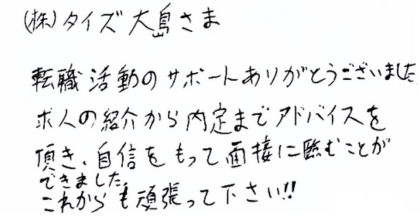 (株)タイズ 大島さま
転職活動のサポートありがとうございました
求人の紹介から内定までアドバイスを
頂き、自信をもって面接に臨むことが
できました。
これからも頑張って下さい!!